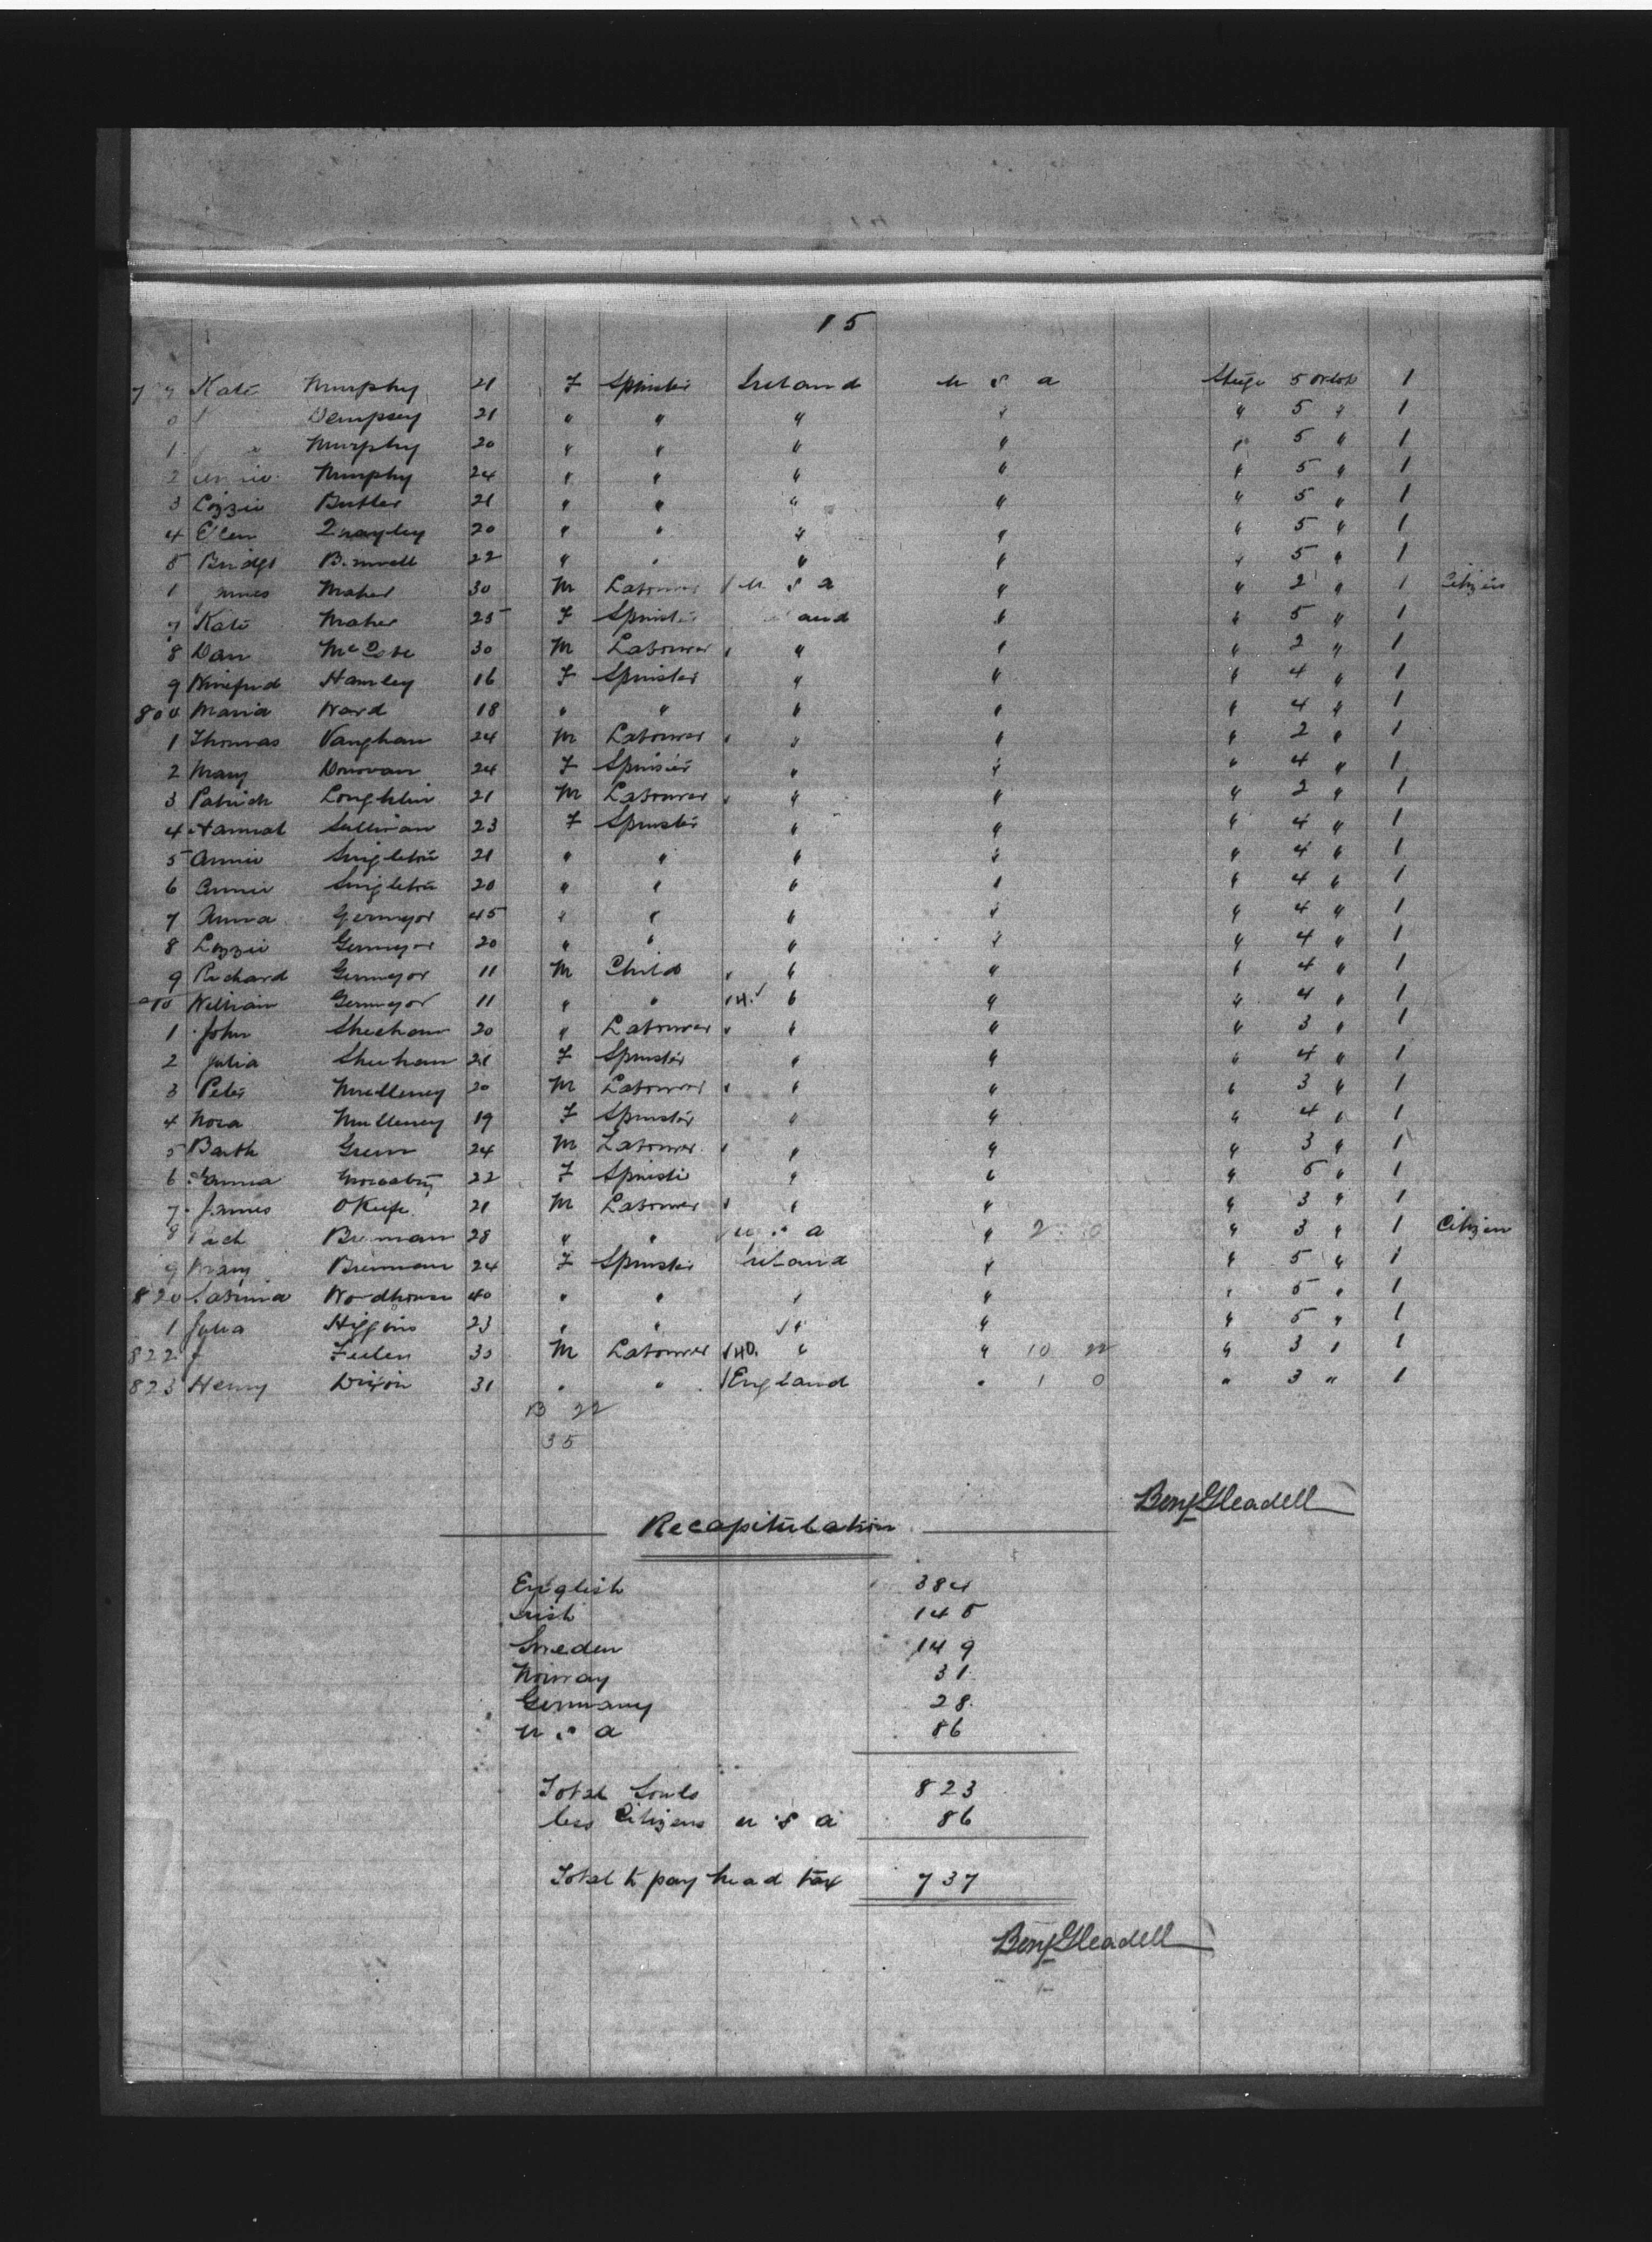 15
Kate Murphy 21 F Spinster Ireland U S a Stege 5 Orlob 1
0 Dempsey 21 " " " " " 5 " 1
1 Murphy 20 " " " " " 5 " 1
2 Murphy 24 " " " " " 5 " 1
3 Lizzie Butler 21 " " " " " 5 " 1
4 Ellen 20 " " " " " 5 " 1
5 Bridgt 22 " " " " " 5 " 1
Maher 30 M Labourer U S a " " 2 " 1 Citizen
7 Kate Maher 25 F Spinster " " 5 " 1
8 Dan 30 M Labourer " " " 2 " 1
9 Winefred Hanley 16 F Spinster " " " 4 " 1
800 Maria Ward 18 " " " " " 4 " 1
1 Thomas Vaughan 24 M Labourer " " " 2 " 1
2 Mary Donovan 24 F Spinster " " " 4 " 1
3 Patrick Loughlin 21 M Labourer " " " 2 " 1
4 Hannah Sullivan 23 F Spinster " " " 4 " 1
5 Annie Singleton 21 " " " " " 4 " 1
6 Annie Singleton 20 " " " " " 4 " 1
7 Anna Germeyor 45 " " " " " 4 " 1
8 Lizzie Germeyor 20 " " " " " 4 " 1
9 Richard Germeyor 11 M Child " " " 4 " 1
10 William Germeyor 11 " " 14. " " " 4 " 1
1 John Sheehan 20 " Labourer " " " 3 " 1
2 Julia Sheehan 21 F Spinster " " " 4 " 1
3 Peter Mulleney 20 M Labourer " " " 3 " 1
4 Nora Mulleney 19 F Spinster " " " 4 " 1
5 Barth Green 24 M Labourer " " " 3 " 1
6 22 F Spinster " " " 5 " 1
7 James OKeefe 21 M Labourer " " " 3 " 1
8 Brennan 28 " " U S a " 2 0 " 3 " 1 Citizen
9 Mary Brennan 24 F Spinster Ireland " " 5 " 1
820 Woodhouse 40 " " " " " 5 " 1
1 Julia Higgins 23 " " " " " 5 " 1
822 30 M Labourer 40. " " 10 22 " 3 " 1
823 Henry Dixon 31 " " England " 1 0 " 3 " 1
13 22
35
Benj Gleadell
Recapitulation
English 384
Irish 145
Sweden 149
Norway 31
Germany 28
U S a 86
Total Souls 823
less Citizens U S a 86
Total to pay head tax 737
Benj Gleadell